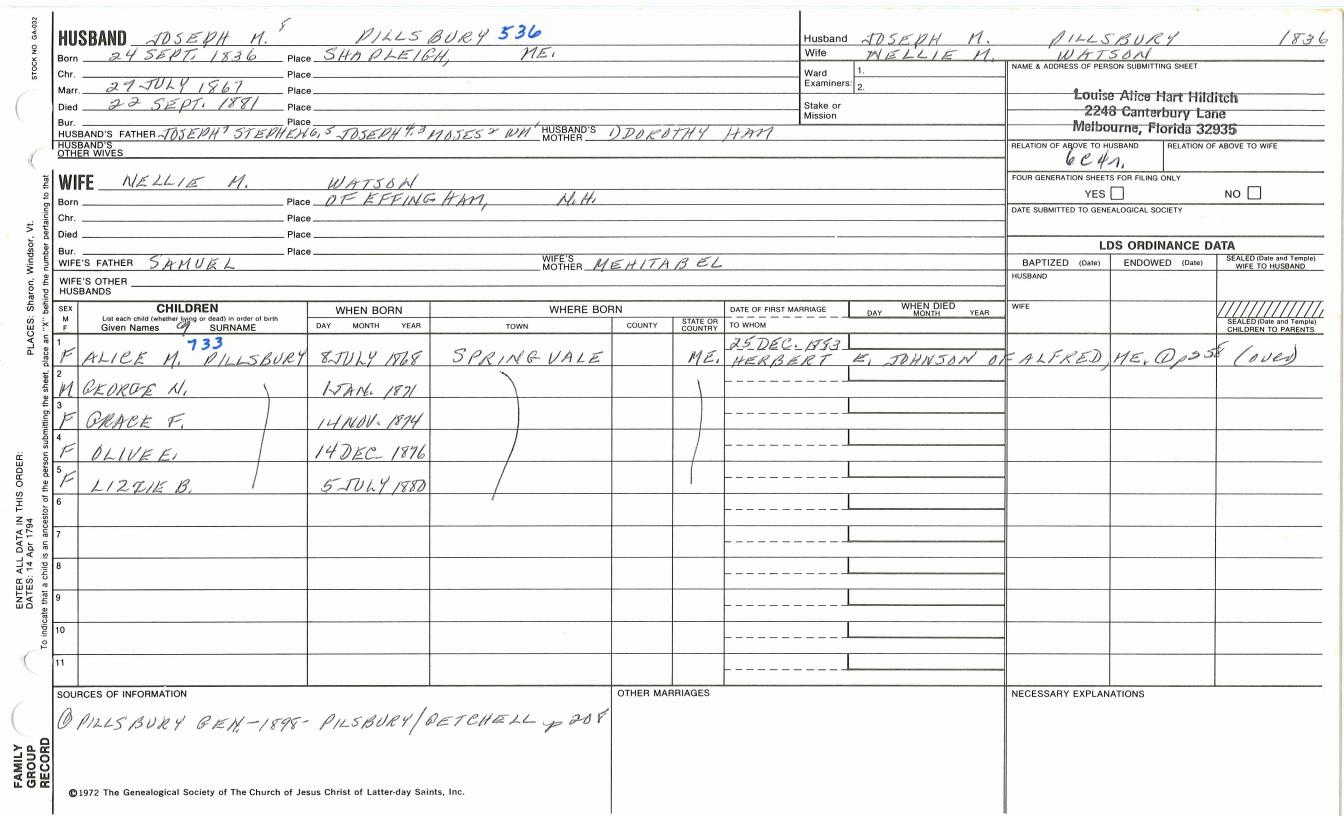 STOCK NO. GA-032
HUSBAND JOSEPH M. 8 PILLSBURY 536
Born 24 SEPT. 1836 Place SHAPLEIGH, ME.
Chr. Place
Marr. 27 JULY 1867 Place
Died 22 SEPT. 1881 Place
Bur. Place
HUSBAND'S FATHER JOSEPH STEPHEN JOSEPH MOSES WM HUSBAND'S MOTHER DOROTHY HAM
HUSBAND'S OTHER WIVES
Husband JOSEPH M. PILLSBURY 1836
Wife NELLIE M. WATSON
Ward Examiners: 1. 2.
Stake or Mission
NAME & ADDRESS OF PERSON SUBMITTING SHEET
Louise Alice Hart Hilditch
2248 Canterbury Lane
Melbourne, Florida 32935
RELATION OF ABOVE TO HUSBAND RELATION OF ABOVE TO WIFE
6C4r.
FOUR GENERATION SHEETS FOR FILING ONLY
YES NO
DATE SUBMITTED TO GENEALOGICAL SOCIETY
WIFE NELLIE M. WATSON
Born Place OF EFFINGHAM, N.H.
Chr. Place
Died Place
Bur. Place
WIFE'S FATHER SAMUEL WIFE'S MOTHER MEHITABEL
WIFE'S OTHER HUSBANDS
LDS ORDINANCE DATA
BAPTIZED (Date) ENDOWED (Date) SEALED (Date and Temple) WIFE TO HUSBAND
HUSBAND
WIFE
SEALED (Date and Temple) CHILDREN TO PARENTS
SEX M F
CHILDREN
List each child (whether living or dead) in order of birth
Given Names SURNAME
WHEN BORN
DAY MONTH YEAR
WHERE BORN
TOWN COUNTY STATE OR COUNTRY
DATE OF FIRST MARRIAGE
TO WHOM
WHEN DIED
DAY MONTH YEAR
733 25 DEC. 1883
1 F ALICE M. PILLSBURY 8 JULY 1868 SPRINGVALE ME. HERBERT E. JOHNSON OF ALFRED, ME. ① p258 (over)
2 M GEORGE N. 1 JAN. 1871
3 F GRACE F. 14 NOV. 1874
4 F OLIVE E. 14 DEC 1876
5 F LIZZIE B. 5 JULY 1880
6
7
8
9
10
11
SOURCES OF INFORMATION OTHER MARRIAGES NECESSARY EXPLANATIONS
① PILLSBURY GEN.-1898- PILSBURY/GETCHELL p 208
©1972 The Genealogical Society of The Church of Jesus Christ of Latter-day Saints, Inc.
FAMILY GROUP RECORD
ENTER ALL DATA IN THIS ORDER:
DATES: 14 Apr 1794
PLACES: Sharon, Windsor, Vt.
To indicate that a child is an ancestor of the person submitting the sheet, place an "X" behind the number pertaining to that